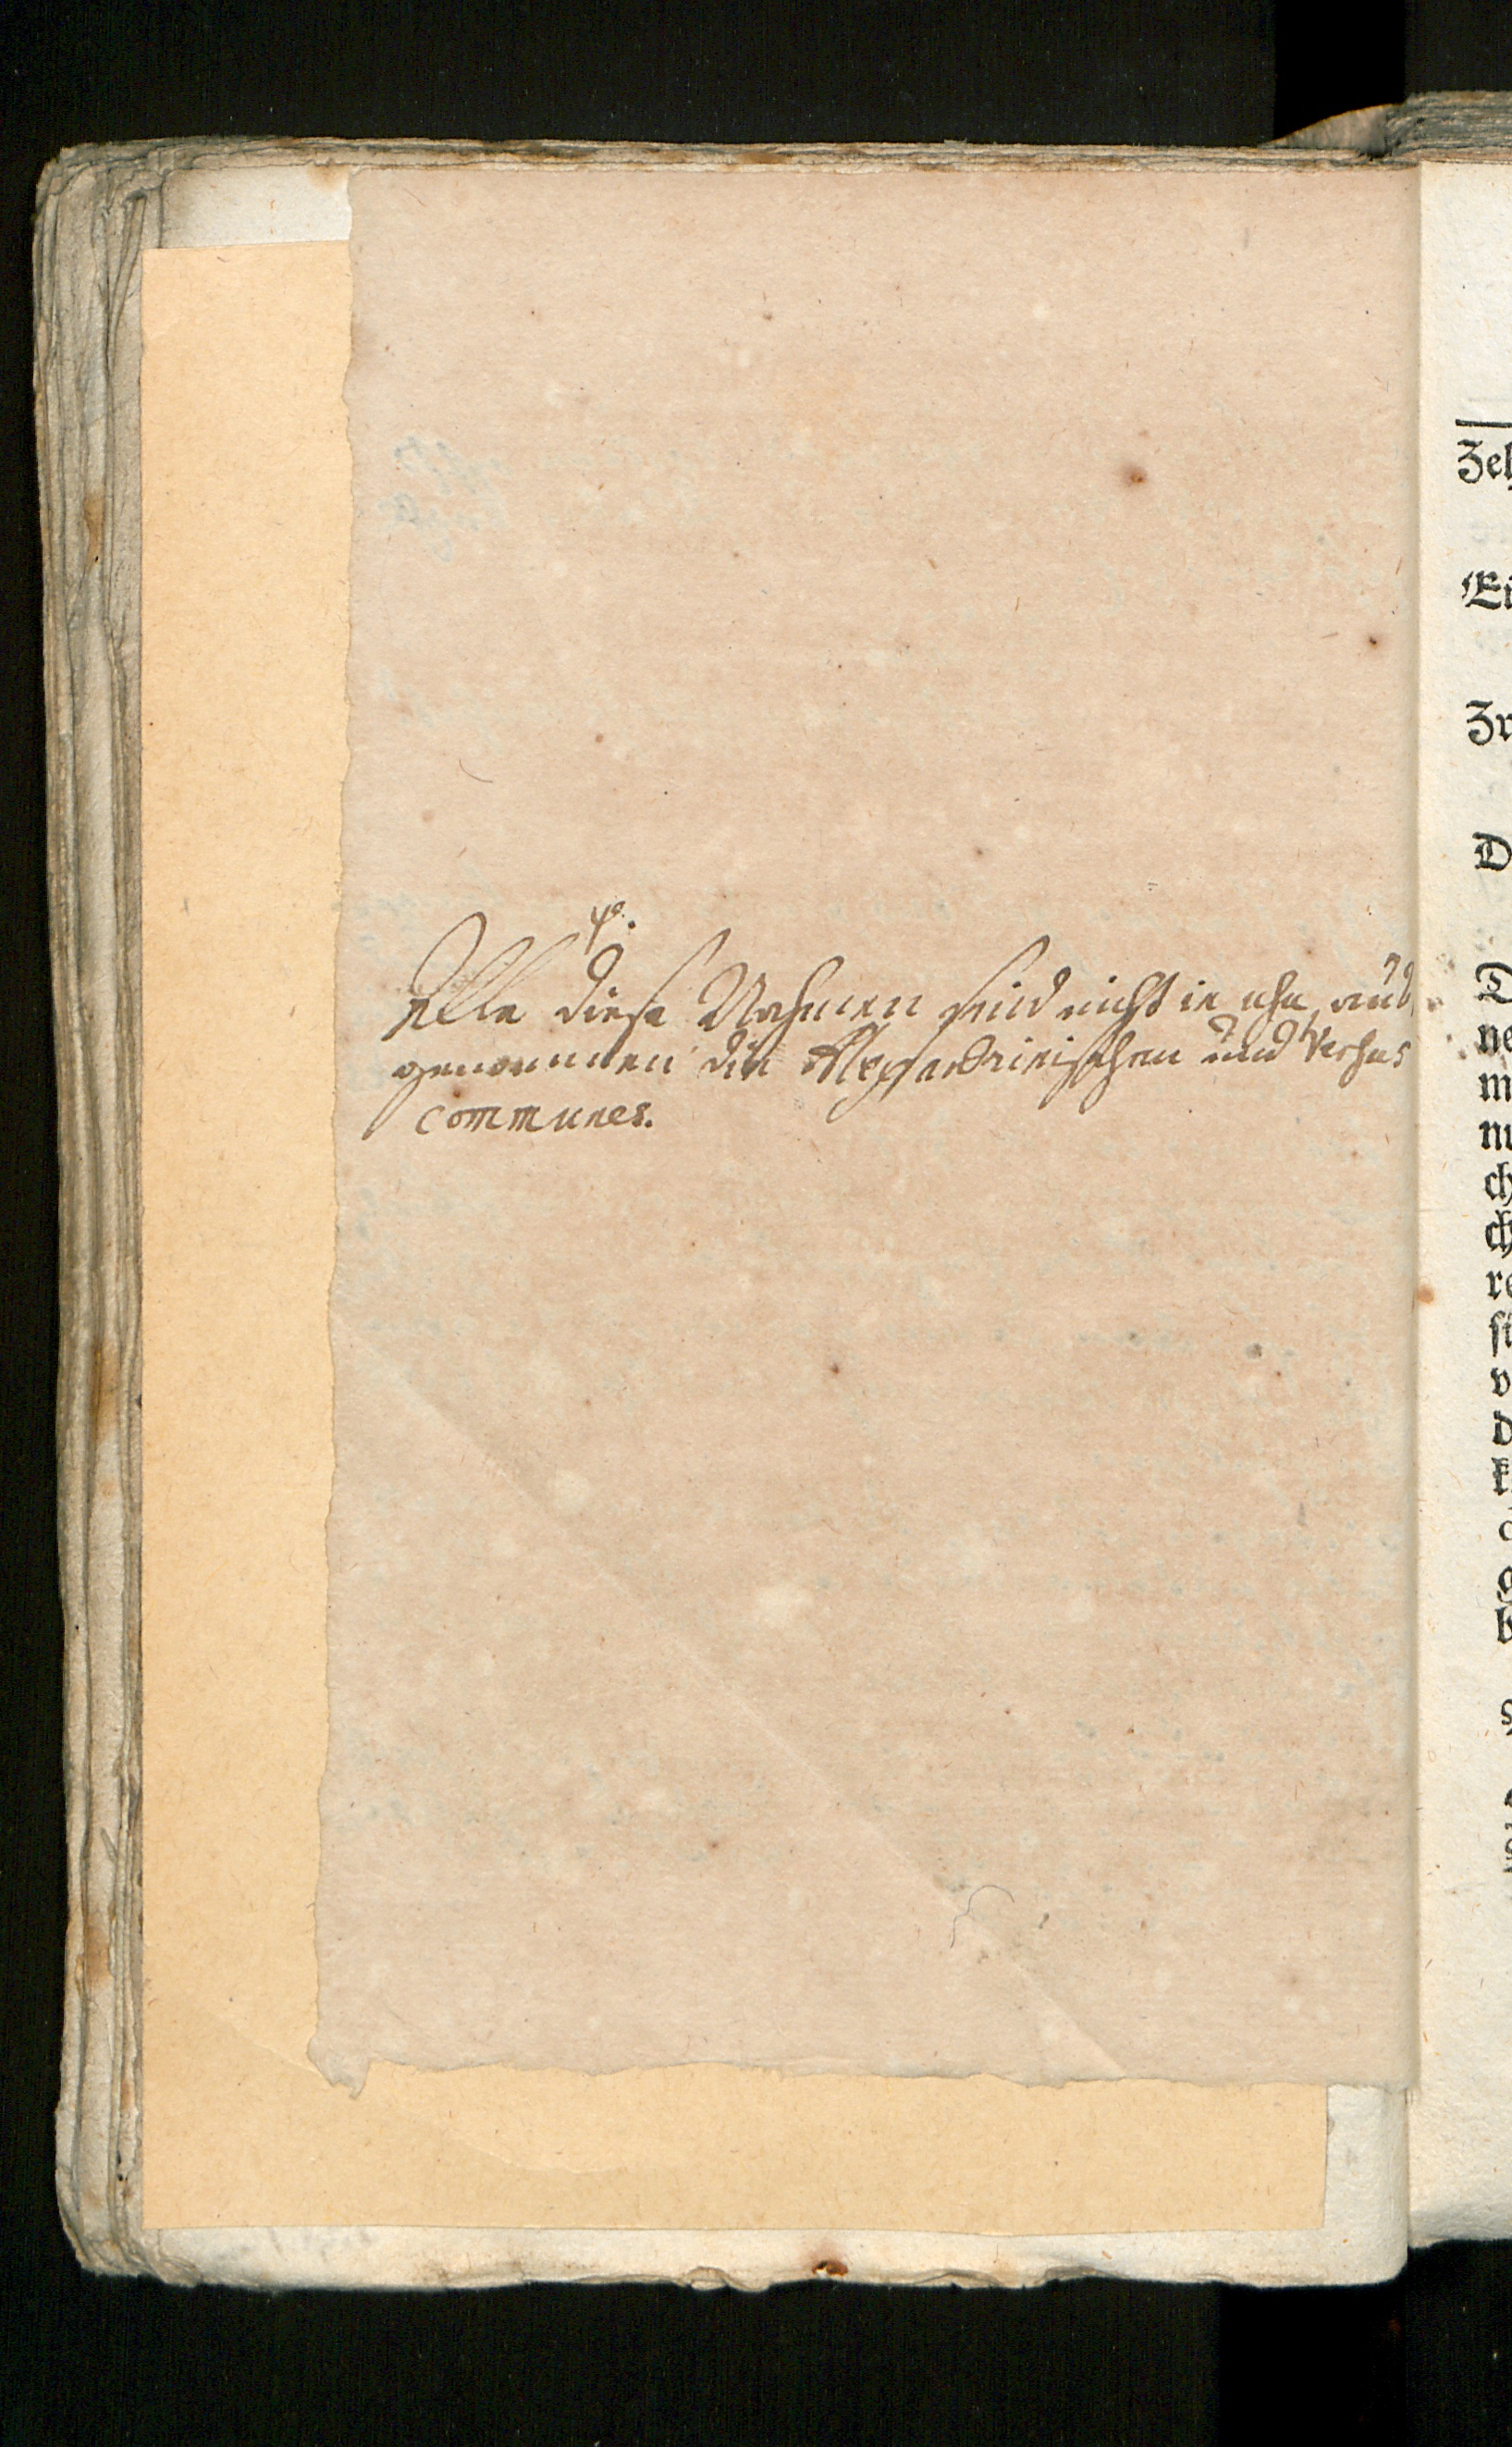 4.
Alle diese Nahmen sind nicht in usu, auß
genommen die Alexandrinischen und Versus
communes.
Zeh
Ei
Zw
D
D
ne
m
nu
ch
ch
re
si
v
d
k
g
b